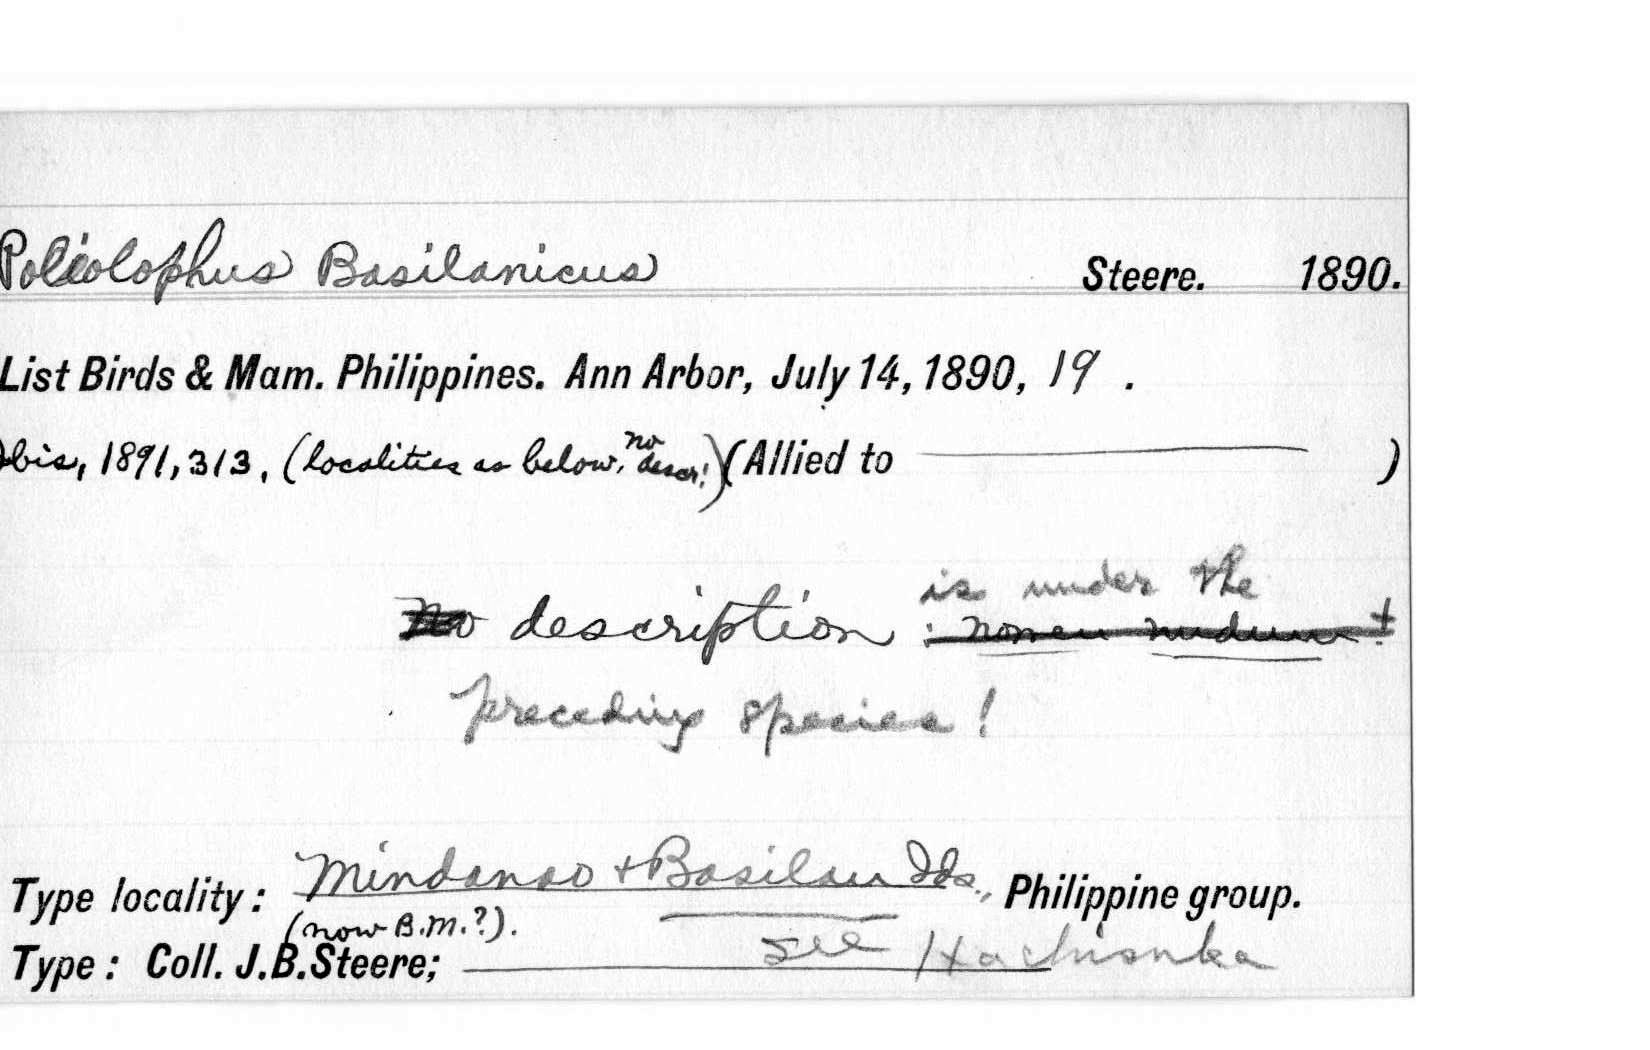 Poliolophus Basilanicus Steere. 1890.
List Birds & Mam. Philippines. Ann Arbor, July 14, 1890, 19.
Ibis, 1891, 313, (localities as below, no descr!) (Allied to )
No description : nomen nudum! is under the
preceding species!
Type locality: Mindanao + Basilan Ids., Philippine group.
(now B.M.?).
Type: Coll. J.B.Steere; see Hachisuka